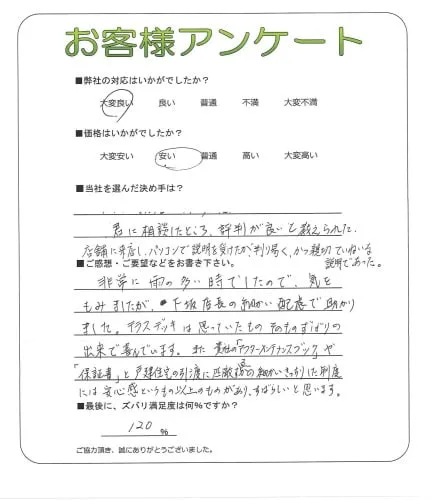 お客様アンケート
■弊社の対応はいかがでしたか？
大変良い 良い 普通 不満 大変不満
■価格はいかがでしたか？
大変安い 安い 普通 高い 大変高い
■当社を選んだ決め手は？
君に相談したところ、評判が良いと教えられた。
店舗に来店し、パソコンで説明を受けたが、判り易く、かつ親切ていねいな
説明であった。
■ご感想・ご要望などをお書き下さい。
非常に雨の多い時でしたので、気を
もみましたが、下坂店長の細かい配慮で助かり
ました。テラスデッキは思っていたもの そのものずばりの
出来で喜んでいます。また 貴社の「アフターメンテナンスブック」や
「保証書」と戸建住宅の引渡に匹敵する細かいきっちりした制度
には安心感というもの以上のものがあり、すばらしいと思います。
■最後に、ズバリ満足度は何％ですか？
120 ％
ご協力頂き、誠にありがとうございました。